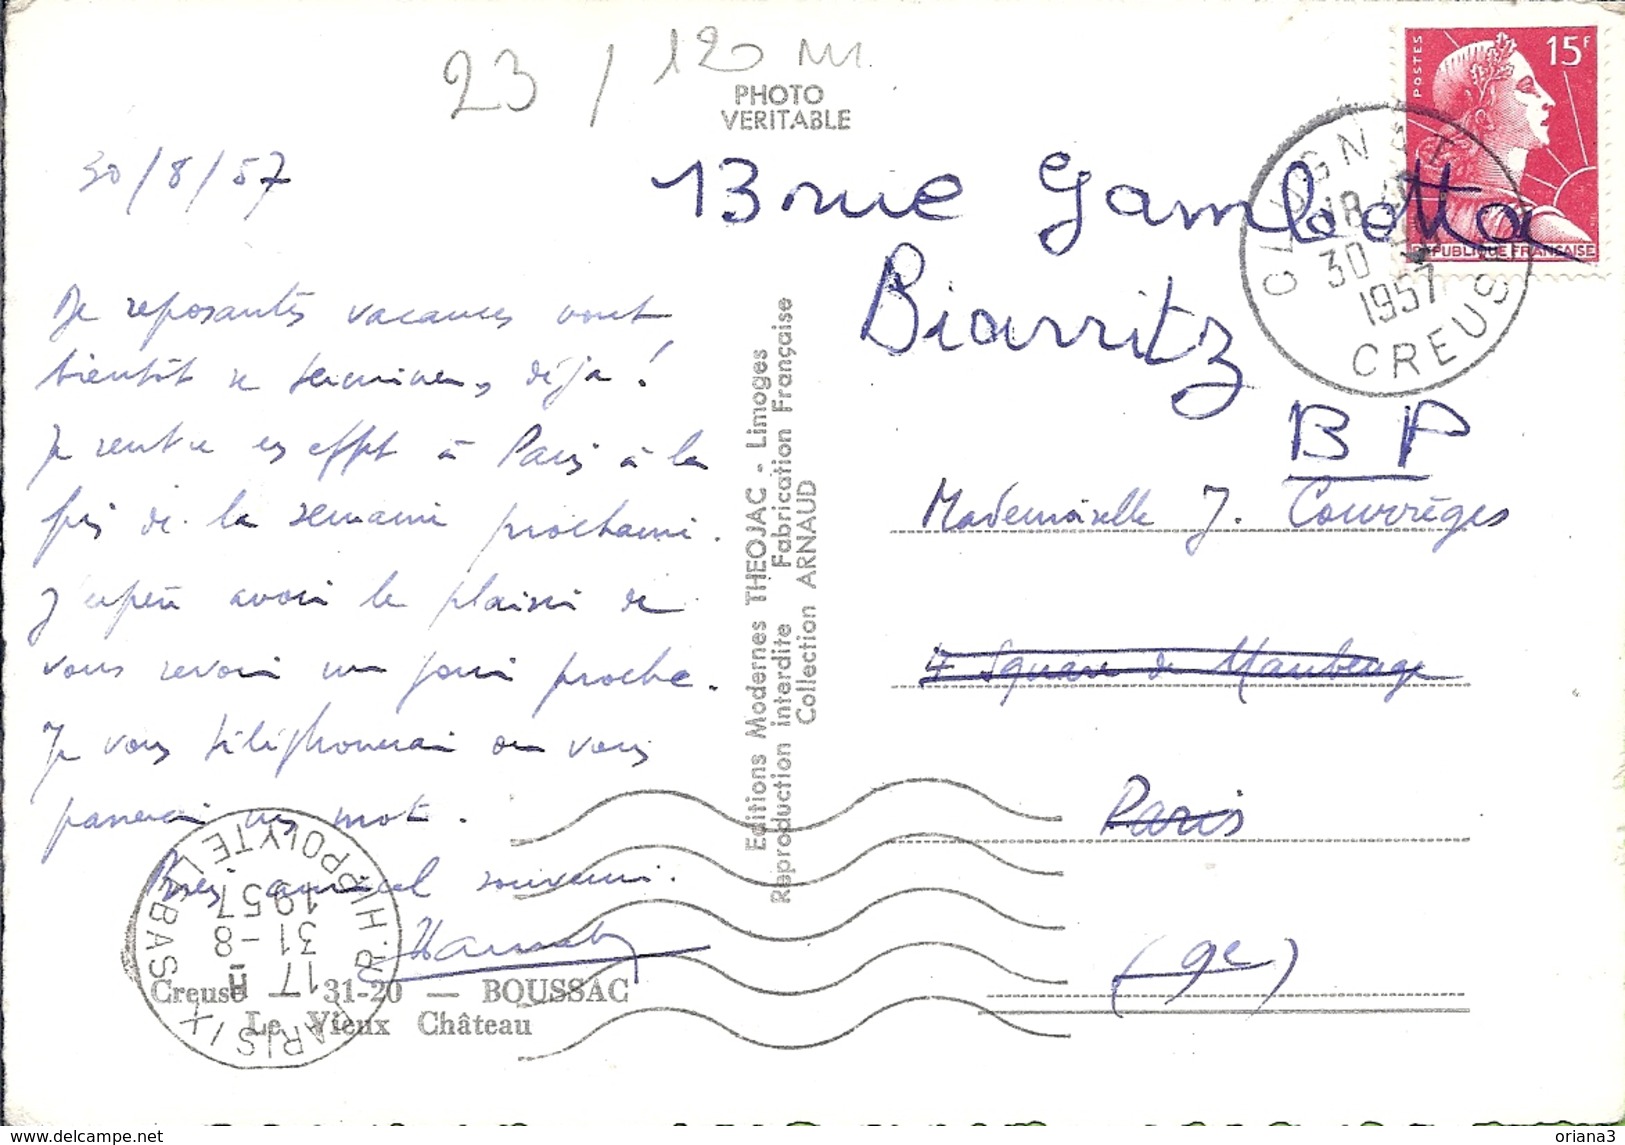 23 / 120 m
PHOTO
VERITABLE
POSTES
15F
REPUBLIQUE FRANÇAISE
CLUGNAT
18 H
30 - 8
1957
CREUSE
30/8/57
13 rue Gambetta
Biarritz
B P
De reposantes vacances vont
bientôt se terminer, déjà!
Je rentre en effet à Paris à la
fin de la semaine prochaine.
J'espère avoir le plaisir de
vous revoir un jour proche.
Je vous téléphonerai ou vous
passerai un mot.
Bien amical souvenir.
Mademoiselle J. Courrèges
4 Square de Maubeuge
Paris
(9e)
Editions Modernes THEOJAC - Limoges
Reproduction interdite Fabrication Française
Collection ARNAUD
R. HIPPOLYTE LEBAS
PARIS IX
17 H
31-8
1957
Creuse — 31-20 — BOUSSAC
Le Vieux Château
oriana3